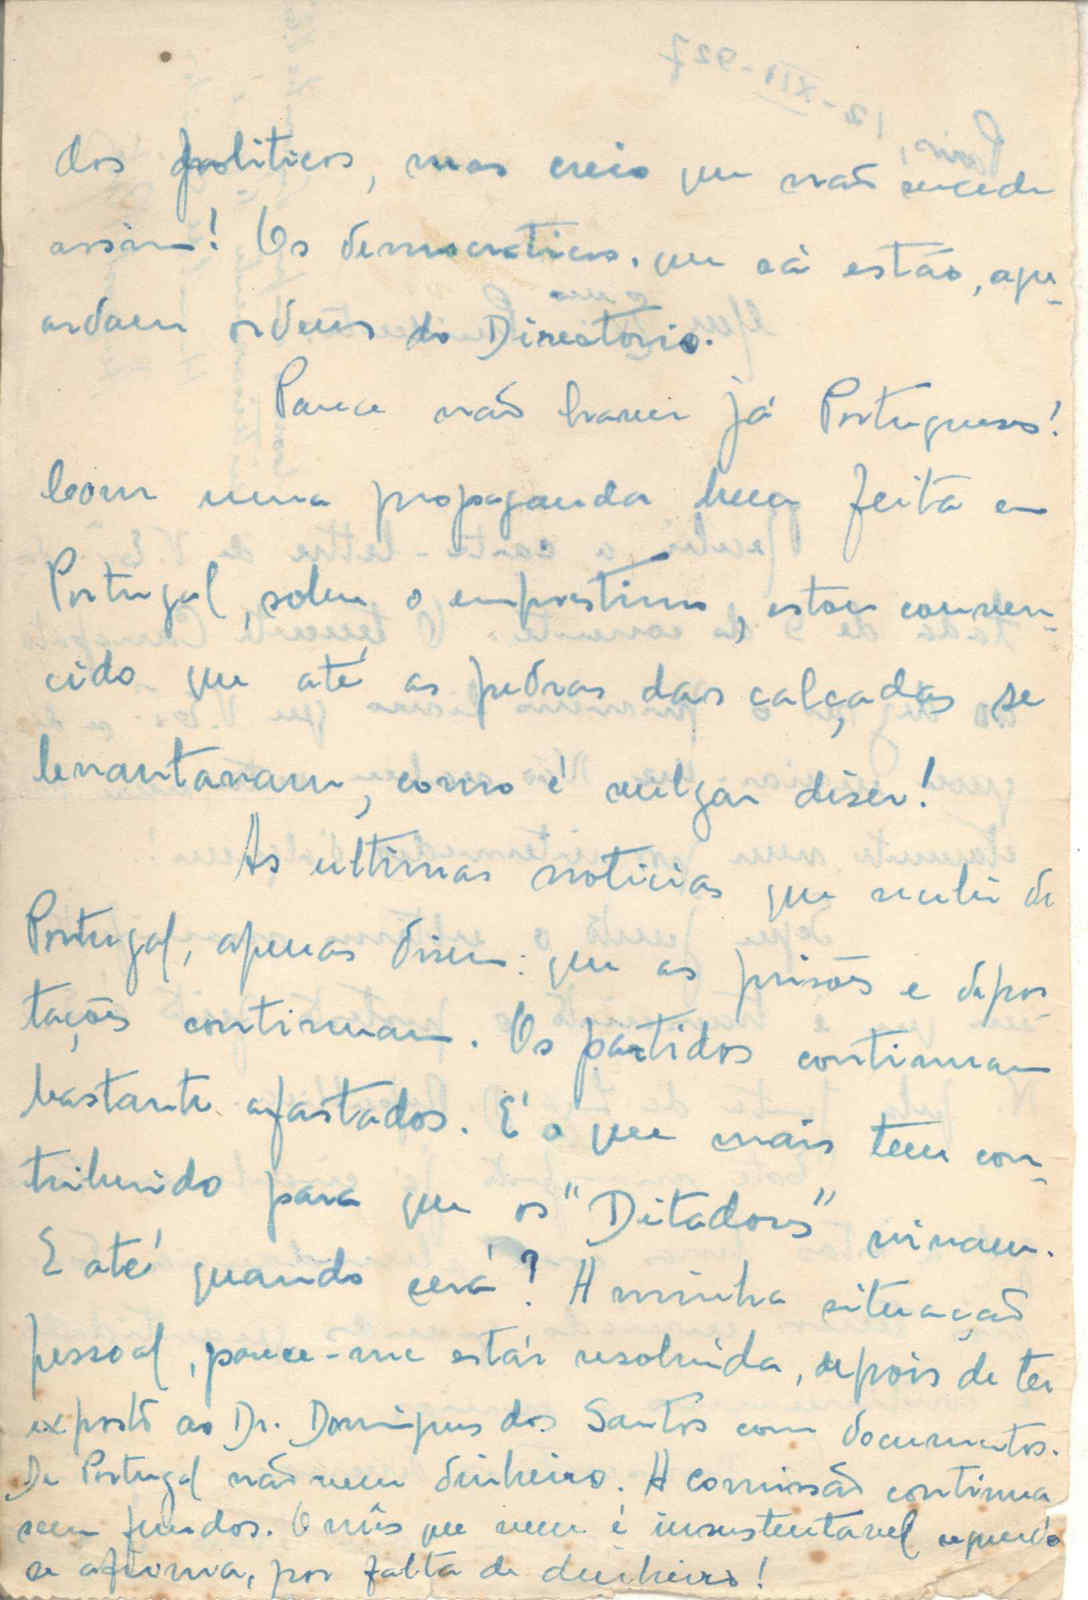 dos politicos, mas creio que não sucede
assim! Os democraticos, que cá estão, agu-
ardam ordens do Directorio.
Parece não haver já Portugueses!
Com uma propaganda bem feita em
Portugal, sobre o emprestimo, estou conven-
cido que até as pedras das calçadas se
levantavam, como é vulgar diser!
As ultimas noticias que recebi de
Portugal, apenas disem: que as prisões e depor
tações continuam. Os partidos continuam
bastante afastados. E' o que mais tem con-
tribuido para que os "Ditadores" vivam.
E até quando será? A minha situação
pessoal, parece-me estár resolvida, depois de ter
exposto ao Dr. Domingues dos Santos com documentos.
De Portugal não vem dinheiro. A comissão continua
sem fundos. O mês que vem é insustentavel segundo
se afirma, por falta de dinheiro!